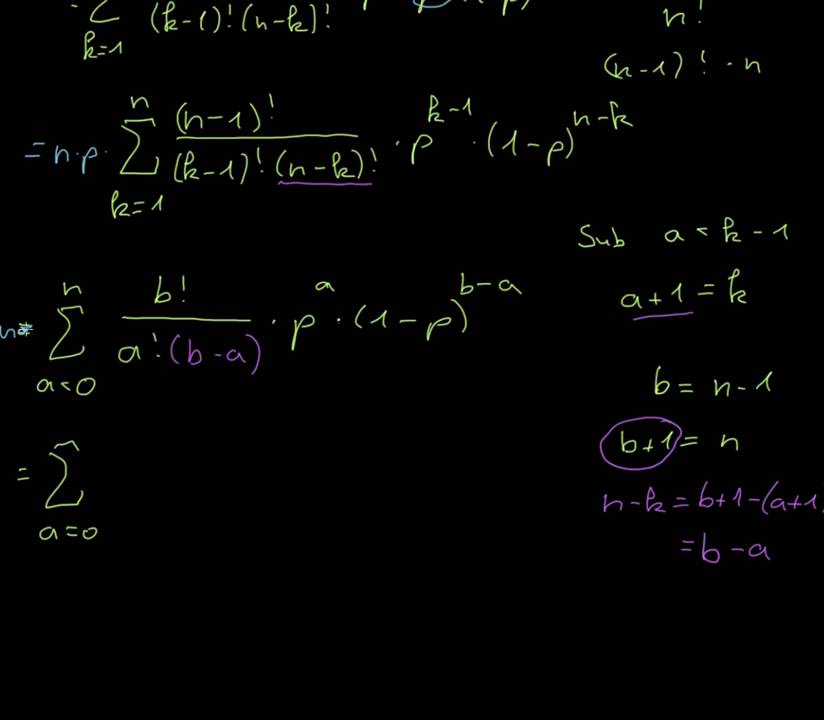 ∑ k=1 (k-1)!(n-k)!
n!
(n-1)! · n
= n·p · ∑ k=1 n (n-1)! / (k-1)!(n-k)! · p^(k-1) · (1-p)^(n-k)
Sub a = k-1
a+1 = k
∑ a=0 n b! / a!(b-a) · p^a · (1-p)^(b-a)
b = n-1
b+1 = n
= ∑ a=0
n-k = b+1-(a+1
= b-a